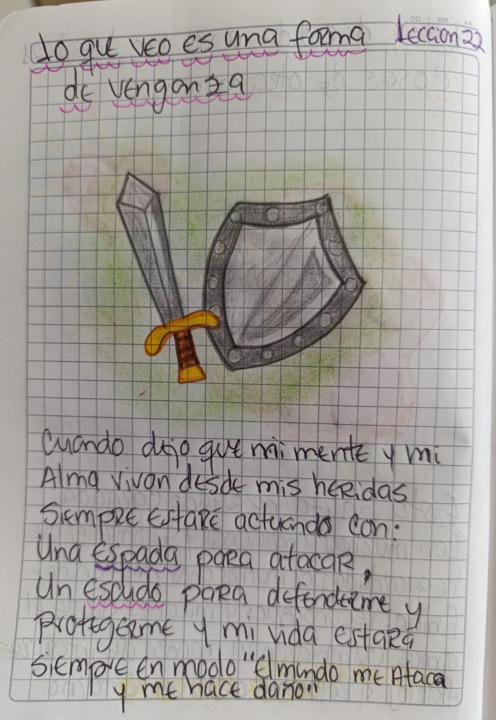 Lo que veo es una forma Leccion 22
de venganza
Cuando dejo que mi mente y mi
Alma vivan desde mis heridas
Siempre estaré actuando con:
Una espada para atacar,
Un escudo para defenderme y
protegerme y mi vida estará
siempre en modo "El mundo me Ataca
y me hace daño"